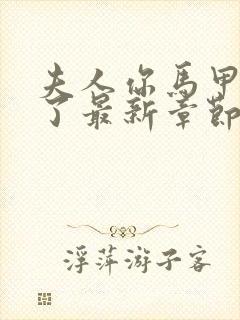 夫人你馬甲
了最新章節
浮萍游子客